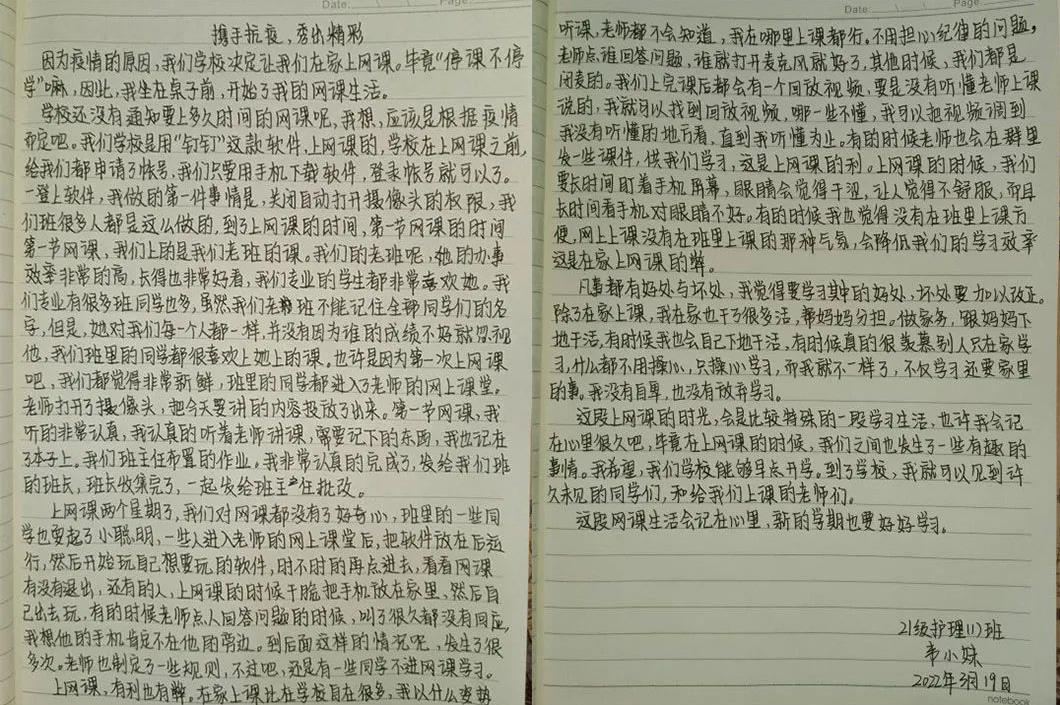 Date.
Page.
携手抗疫，秀出精彩
因为疫情的原因，我们学校决定让我们在家上网课。毕竟“停课不停
学”嘛，因此，我坐在桌子前，开始了我的网课生活。
学校还没有通知要上多久时间的网课呢，我想，应该是根据疫情
而定吧。我们学校是用“钉钉”这款软件，上网课的，学校在上网课之前，
给我们都申请了帐号，我们只要用手机下载软件，登录帐号就可以了。
一登上软件，我做的第一件事情是，关闭自动打开摄像头的权限，我
们班很多人都是这么做的，到了上网课的时间，第一节网课的时间
第一节网课，我们上的是我们老班的课。我们的老班呢，她的办事
效率非常的高，长得也非常好看，我们专业的学生都非常喜欢她。我
们专业有很多班同学也多，虽然我们老班不能记住全部同学们的名
字，但是，她对我们每一个人都一样，并没有因为谁的成绩不好就忽视
他，我们班里的同学都很喜欢上她上的课。也许是因为第一次上网课
吧，我们都觉得非常新鲜，班里的同学都进入了老师的网上课堂。
老师打开了摄像头，把今天要讲的内容投放了出来。第一节网课，我
听的非常认真，我认真的听着老师讲课，需要记下的东西，我也记在
了本子上。我们班主任布置的作业，我非常认真的完成了，发给我们班
的班长，班长收集完了，一起发给班主任批改。
上网课两个星期了，我们对网课都没有了好奇心，班里的一些同
学也耍起了小聪明，一些人进入老师的网上课堂后，把软件放在后运
行，然后开始玩自己想要玩的软件，时不时的再点进去，看看网课
有没有退出，还有的人，上网课的时候干脆把手机放在家里，然后自
己出去玩，有的时候老师点人回答问题的时候，叫了很久都没有回应，
我想他的手机肯定不在他的旁边。到后面这样的情况呢，发生了很
多次。老师也制定了一些规则，不过吧，还是有一些同学不进网课学习。
上网课，有利也有弊。在家上课比在学校自在很多，我以什么姿势
Date.
Page
听课，老师都不会知道，我在哪里上课都行。不用担心纪律的问题，
老师点谁回答问题，谁就打开麦克风就好了，其他时候，我们都是
闭麦的。我们上完课后都会有一个回放视频，要是没有听懂老师上课
说的，我就可以找到回放视频，哪一些不懂，我可以把视频调到
我没有听懂的地方看，直到我听懂为止。有的时候老师也会在群里
发一些课件，供我们学习，这是上网课的利。上网课的时候，我们
要长时间盯着手机屏幕，眼睛会觉得干涩，让人觉得不舒服，而且
长时间看手机对眼睛不好。有的时候我也觉得没有在班里上课方
便，网上上课没有在班里上课的那种气氛，会降低我们的学习效率
这是在家上网课的弊。
凡事都有好处与坏处，我觉得要学习其中的好处，坏处要加以改正。
除了在家上课，我在家也干了很多活，帮妈妈分担。做家务，跟妈妈下
地干活，有时候我也会自己下地干活，有时候真的很羡慕别人只在家学
习，什么都不用操心，只操心学习，而我就不一样了，不仅学习还要家里
的事。我没有自卑，也没有放弃学习。
这段上网课的时光，会是比较特殊的一段学习生活，也许我会记
在心里很久吧，毕竟在上网课的时候，我们之间也发生了一些有趣的
事情。我希望，我们学校能够早点开学。到了学校，我就可以见到许
久未见的同学们，和给我们上课的老师们。
这段网课生活会记在心里，新的学期也要好好学习。
21级护理(1)班
韦小妹
2022年3月19日
notebook